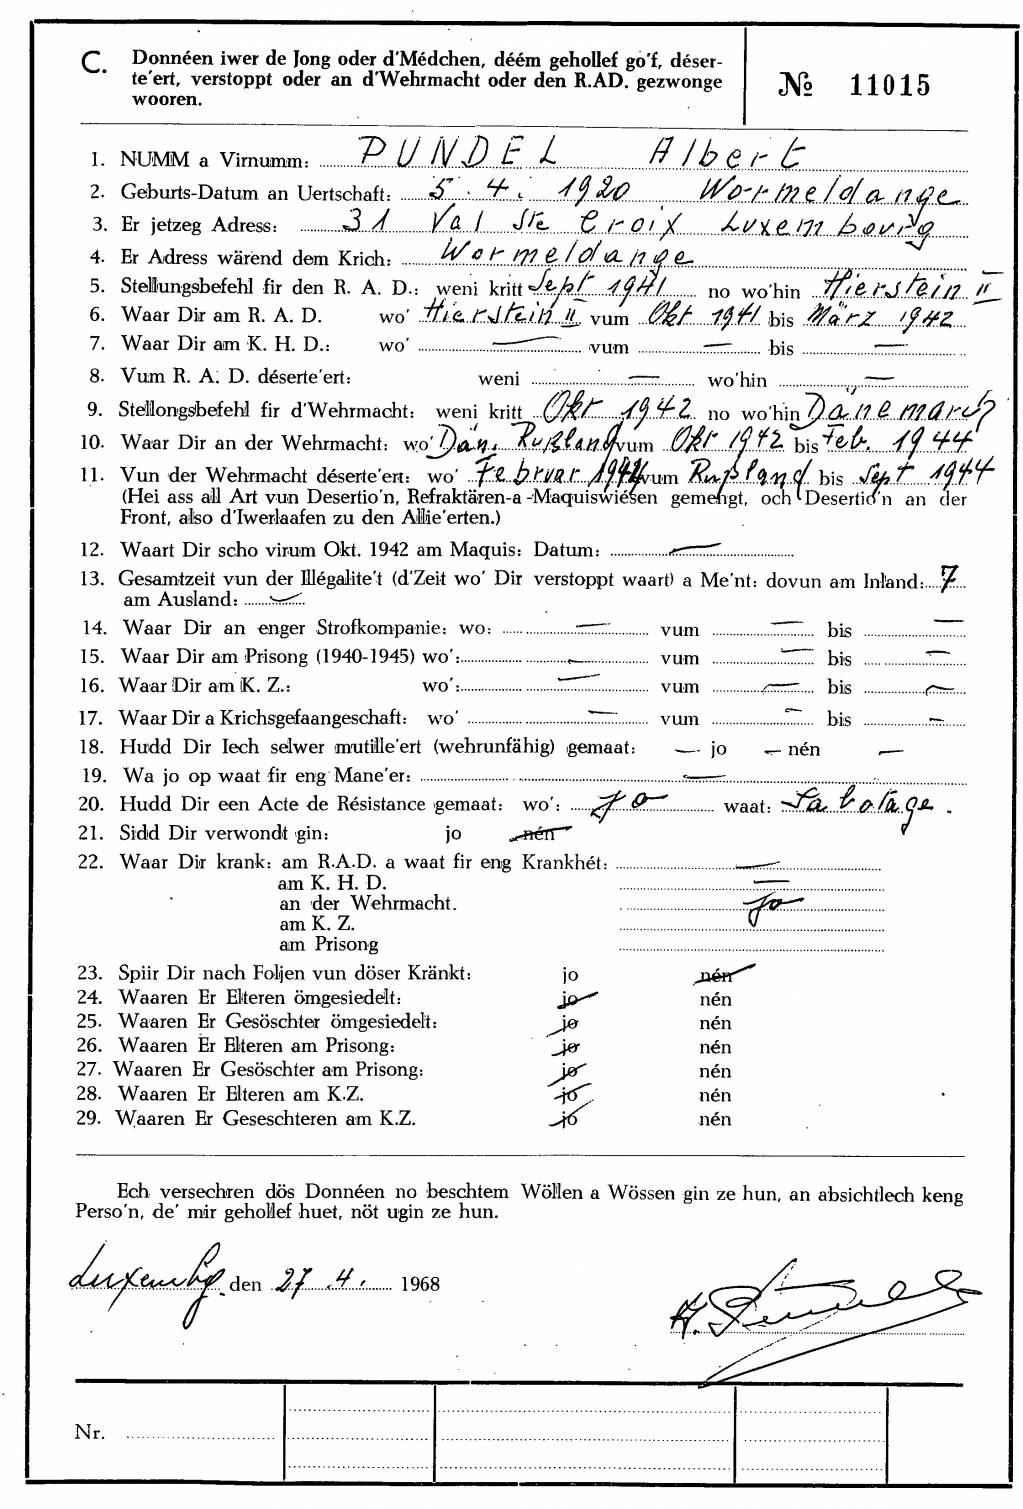 C. Donnéen iwer de Jong oder d'Médchen, déém gehollef go'f, déser-
te'ert, verstoppt oder an d'Wehrmacht oder den R.AD. gezwonge
wooren.
№ 11015
1. NUMM a Virnumm: PUNDEL Albert
2. Geburts-Datum an Uertschaft: 5. 4. 1920 Wormeldange
3. Er jetzeg Adress: 31 Val Ste Croix Luxembourg
4. Er Adress wärend dem Krich: Wormeldange
5. Stellungsbefehl fir den R. A. D.: weni kritt Sept 1941 no wo'hin Hierstein II
6. Waar Dir am R. A. D. wo' Hierstein II vum Okt 1941 bis März 1942
7. Waar Dir am K. H. D.: wo' — vum — bis —
8. Vum R. A. D. déserte'ert: weni — wo'hin —
9. Stellongsbefehl fir d'Wehrmacht: weni kritt Okt 1942 no wo'hin Dänemark
10. Waar Dir an der Wehrmacht: wo' Dän. Rußland vum Okt 1942 bis Feb. 1944
11. Vun der Wehrmacht déserte'ert: wo' Februar 1944 vum Rußland bis Sept 1944
(Hei ass all Art vun Desertio'n, Refraktären-a -Maquiswiésen gemengt, och Desertio'n an der
Front, also d'Iwerlaafen zu den Allie'erten.)
12. Waart Dir scho virum Okt. 1942 am Maquis: Datum: —
13. Gesamtzeit vun der Illégalite't (d'Zeit wo' Dir verstoppt waart) a Me'nt: dovun am Inland: 7
am Ausland: —
14. Waar Dir an enger Strofkompanie: wo: — vum — bis —
15. Waar Dir am Prisong (1940-1945) wo': — vum — bis —
16. Waar Dir am K. Z.: wo': — vum — bis —
17. Waar Dir a Krichsgefaangeschaft: wo' — vum — bis —
18. Hudd Dir Iech selwer mutille'ert (wehrunfähig) gemaat: — jo — nén —
19. Wa jo op waat fir eng Mane'er: —
20. Hudd Dir een Acte de Résistance gemaat: wo': jo waat: Sabotage.
21. Sidd Dir verwondt gin: jo nén
22. Waar Dir krank: am R.A.D. a waat fir eng Krankhét: —
am K. H. D. —
an der Wehrmacht. jo
am K. Z.
am Prisong
23. Spiir Dir nach Foljen vun döser Kränkt: jo nén
24. Waaren Er Elteren ömgesiedelt: jo nén
25. Waaren Er Gesöschter ömgesiedelt: jo nén
26. Waaren Er Elteren am Prisong: jo nén
27. Waaren Er Gesöschter am Prisong: jo nén
28. Waaren Er Elteren am K.Z. jo nén
29. Waaren Er Geseschteren am K.Z. jo nén
Ech versechren dös Donnéen no beschtem Wöllen a Wössen gin ze hun, an absichtlech keng
Perso'n, de' mir gehollef huet, nöt ugin ze hun.
Luxembg. den 27. 4. 1968
A. Pundel
Nr.